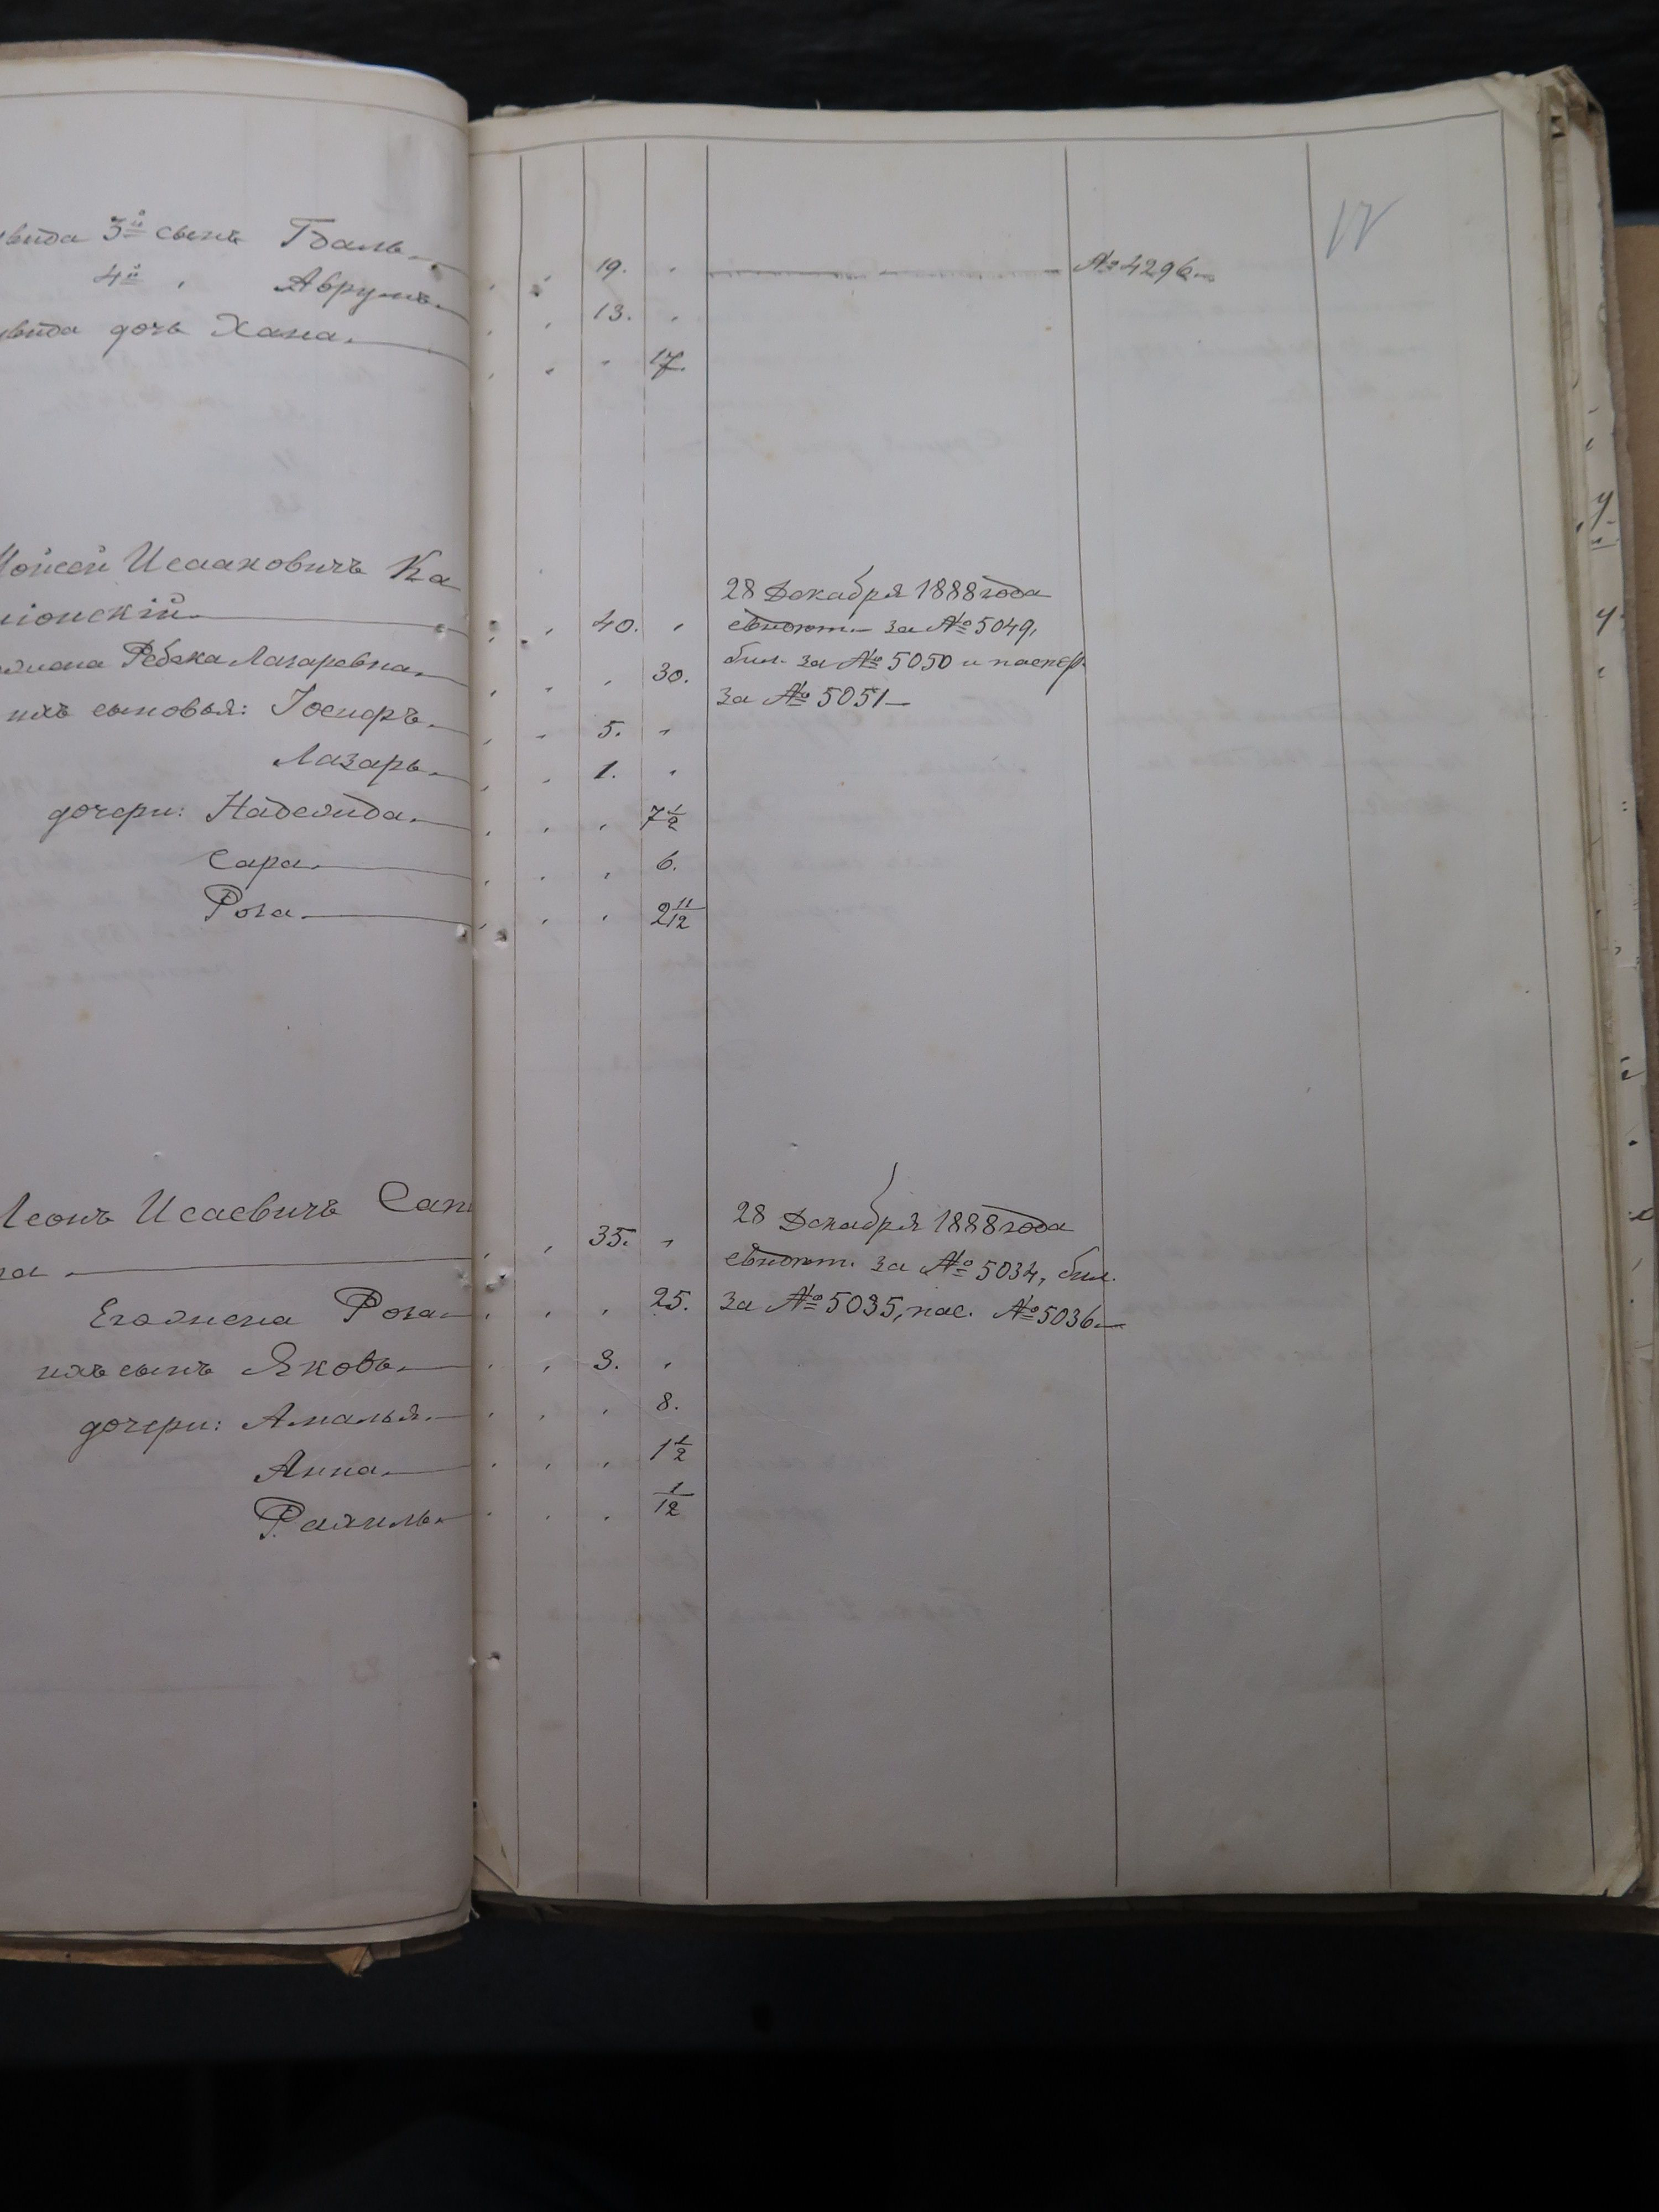 17
вида 3й сынъ Гдаль 19. № 4296
4й " Аврумъ 13.
вида дочь Хана 17.
Мойсей Исааковичъ Ка
ионскій 40.
28 Декабря 1888 года
свидот. за № 5049,
бил. за № 5050 и паспор.
за № 5051
жена Ребека Лазаревна 30.
ихъ сыновья: Іосифъ 5.
Лазарь 1.
дочери: Надежда 7 1/2
Сара 6.
Роза 2 11/12
Леонъ Исаевичъ Сап
на 35.
28 Декабря 1888 года
свидот. за № 5034, бил.
за № 5035, пас. № 5036
Его жена Роза 25.
ихъ сынъ Яковъ 3.
дочери: Амалья 8.
Анна 1 1/2
Рахиль 1/12